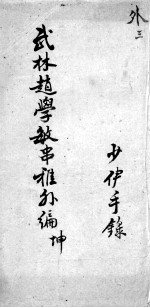 外三
武林趙學敏串雅外編 坤
少伊手錄